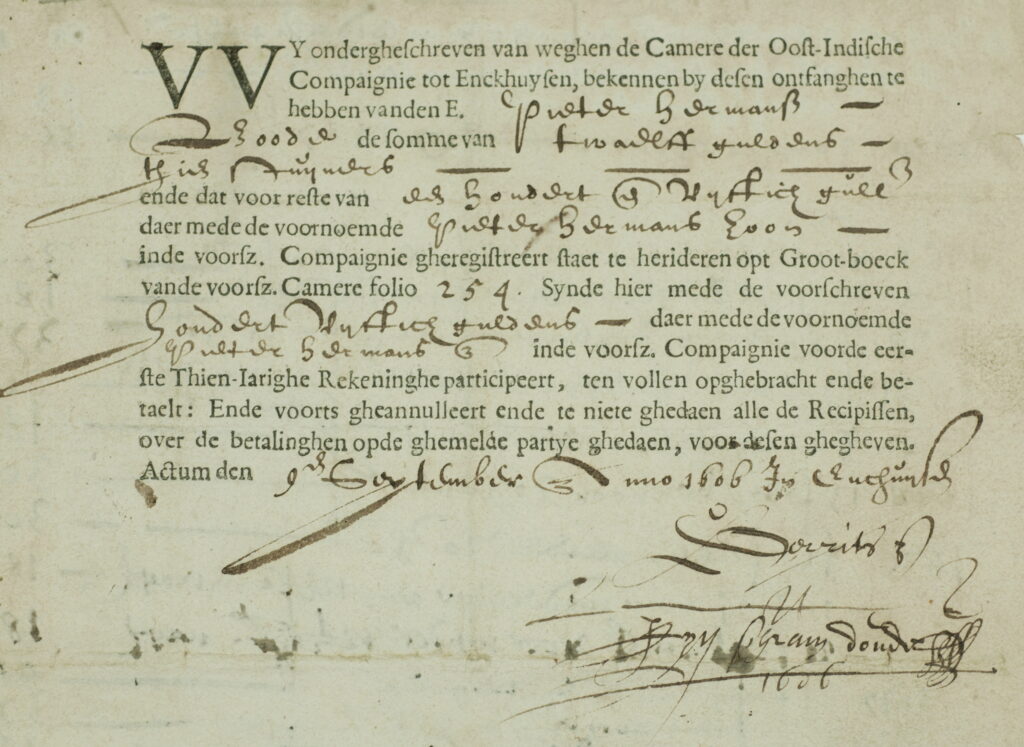 VVY ondergheschreven van weghen de Camere der Oost-Indische
Compaignie tot Enckhuysen, bekennen by desen ontfanghen te
hebben vanden E. Pieter Hermansz
de somme van twaelff guldens
thien stuyvers
ende dat voor reste van een hondert en vyftich gull
daer mede de voornoemde Pieter Hermans zoon
inde voorsz. Compaignie gheregistreert staet te herideren opt Groot-boeck
vande voorsz. Camere folio 254. Synde hier mede de voorschreven
hondert vyftich guldens daer mede de voornoemde
Pieter Hermans inde voorsz. Compaignie voorde eer-
ste Thien-Iarighe Rekeninghe participeert, ten vollen opghebracht ende be-
taelt: Ende voorts gheannulleert ende te niete ghedaen alle de Recipissen,
over de betalinghen opde ghemelde partye ghedaen, voor desen ghegheven.
Actum den 9en September Anno 1606 In Enchuysen
Gerrits
1606